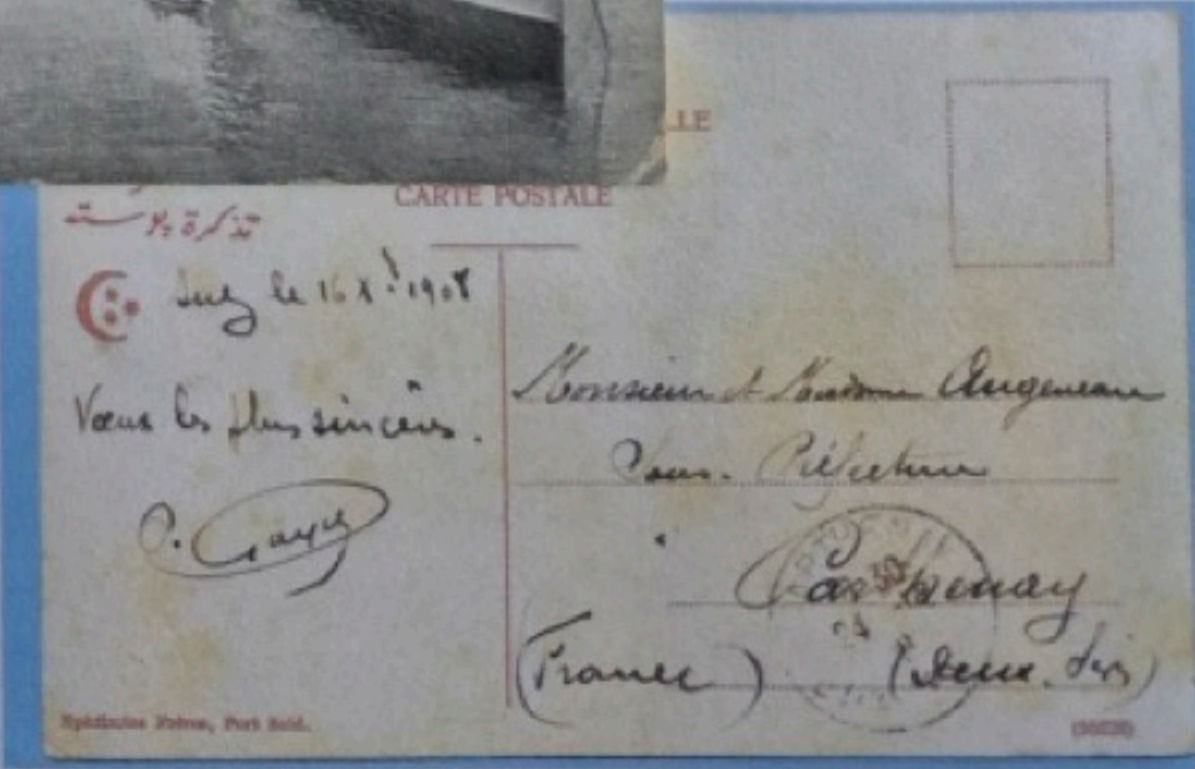 LE
CARTE POSTALE
تذكرة بوسته
Suez le 16 Xbre 1908
Vœux les plus sincères.
Monsieur et Madame Angeneau
Sous-Préfecture
Parthenay
(France) (Deux-Sèvres)
Ephtimios Frères, Port Said.